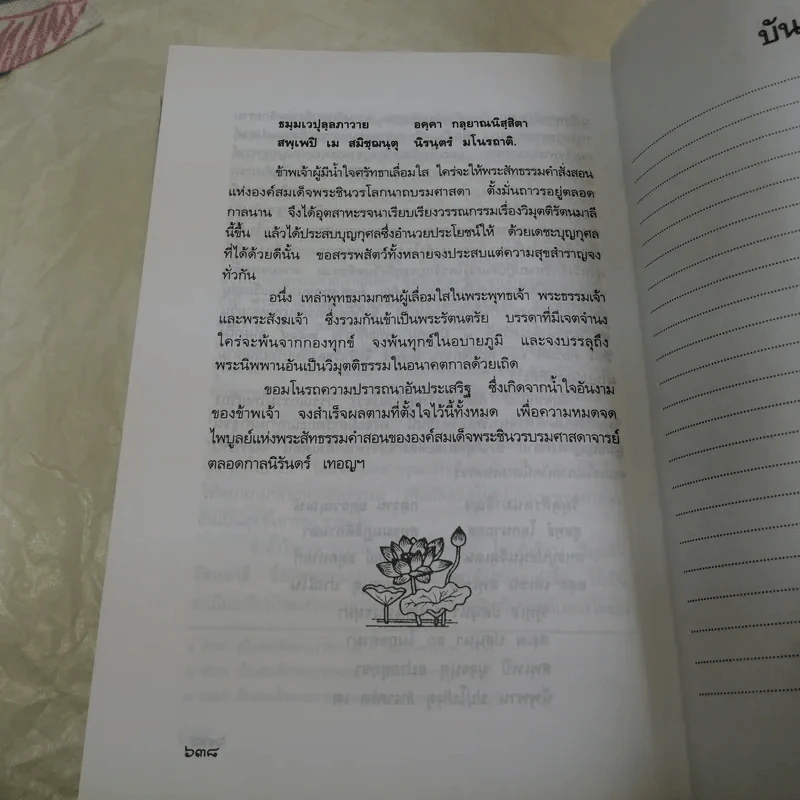 บัน
ธมฺมเวปุลฺลภาวาย อคฺคา กลฺยาณนิสฺสิตา
สพฺเพปิ เม สมิชฺฌนฺตุ นิรนฺตรํ มโนรถาติ.
ข้าพเจ้าผู้มีน้ำใจศรัทธาเลื่อมใส ใคร่จะให้พระสัทธรรมคำสั่งสอน
แห่งองค์สมเด็จพระชินวรโลกนาถบรมศาสดา ตั้งมั่นถาวรอยู่ตลอด
กาลนาน จึงได้อุตสาหะรจนาเรียบเรียงวรรณกรรมเรื่องวิมุตติรัตนมาลี
นี้ขึ้น แล้วได้ประสบบุญกุศลซึ่งอำนวยประโยชน์ให้ ด้วยเดชะบุญกุศล
ที่ได้ด้วยดีนั้น ขอสรรพสัตว์ทั้งหลายจงประสบแต่ความสุขสำราญจง
ทั่วกัน
อนึ่ง เหล่าพุทธมามกชนผู้เลื่อมใสในพระพุทธเจ้า พระธรรมเจ้า
และพระสังฆเจ้า ซึ่งรวมกันเข้าเป็นพระรัตนตรัย บรรดาที่มีเจตจำนง
ใคร่จะพ้นจากกองทุกข์ จงพ้นทุกข์ในอบายภูมิ และจงบรรลุถึง
พระนิพพานอันเป็นวิมุตติธรรมในอนาคตกาลด้วยเถิด
ขอมโนรถความปรารถนาอันประเสริฐ ซึ่งเกิดจากน้ำใจอันงาม
ของข้าพเจ้า จงสำเร็จผลตามที่ตั้งใจไว้นี้ทั้งหมด เพื่อความหมดจด
ไพบูลย์แห่งพระสัทธรรมคำสอนขององค์สมเด็จพระชินวรบรมศาสดาจารย์
ตลอดกาลนิรันดร์ เทอญฯ
๖๓๘